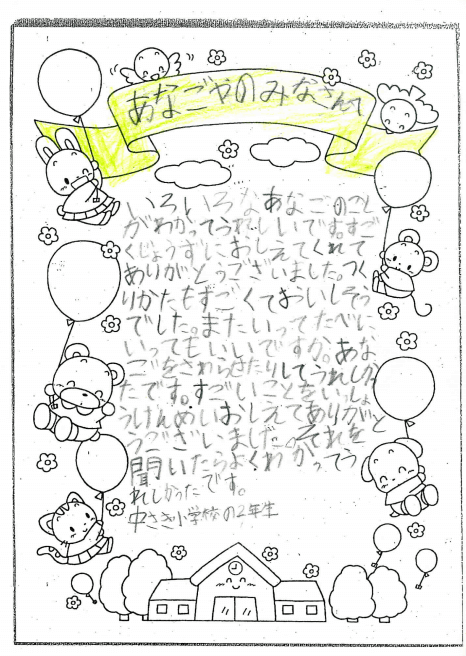 あなごやのみなさんへ
いろいろなあなごのこと
がわかってうれしいです。すご
くじょうずにおしえてくれて
ありがとうございました。つく
りかたもすごくておいしそう
でした。またいってたべに
いってもいいですか。あな
ごをさわらせたりしてうれしか
たです。すごいことをいっしょ
うけんめいおしえてありがと
うございました。それを
聞いたらよくわかってう
れしかったです。
中さき小学校の2年生